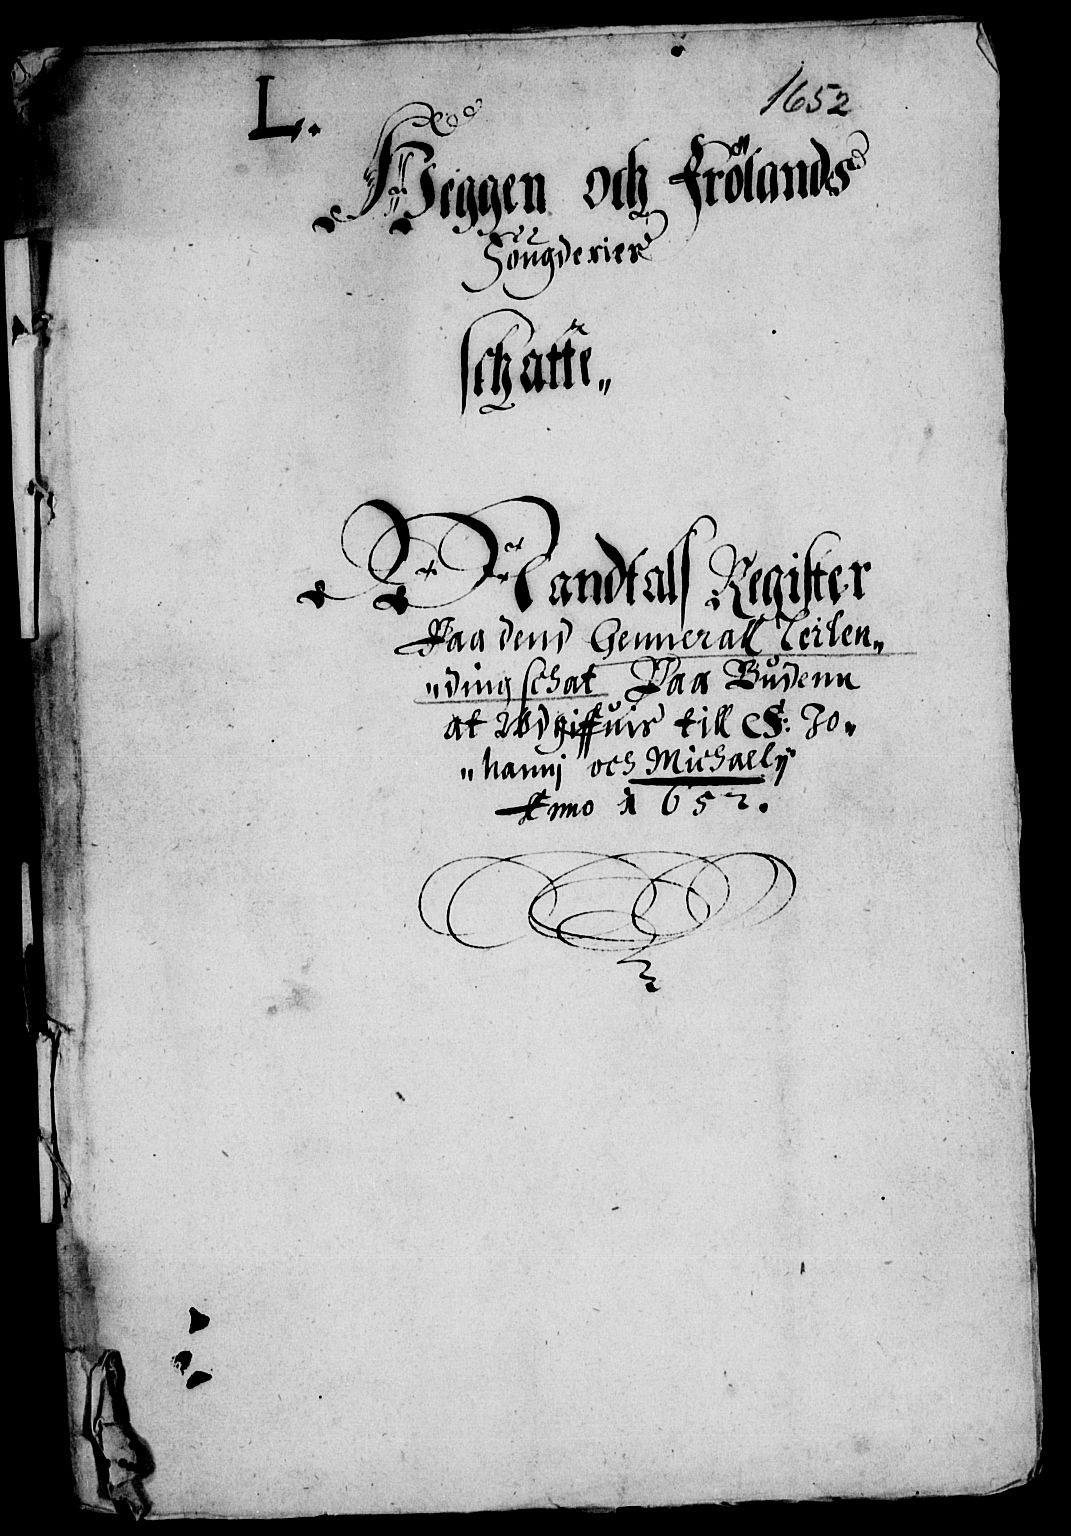 L.
1652
Heggen och Frölands
Fougderier
schatte„
Mandtals Register
Paa dend Generall Leilen„
„ding schat Paa Budenn
at Udgiffuis till S: Jo„
„hannj och Michaelÿ
Anno 1652.